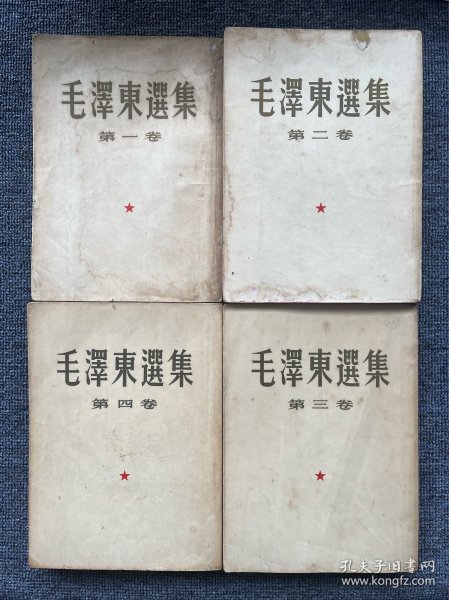 毛澤東選集
第一卷
毛澤東選集
第二卷
毛澤東選集
第四卷
毛澤東選集
第三卷
孔夫子旧书网
www.kongfz.com